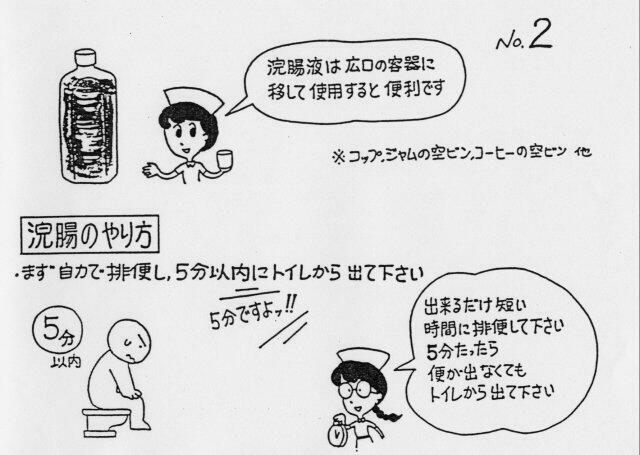 No.2
浣腸液は広口の容器に
移して使用すると便利です
※コップ,ジャムの空ビン,コーヒーの空ビン 他
浣腸のやり方
・まず自力で排便し,5分以内にトイレから出て下さい
5分ですよッ!!
5分
以内
出来るだけ短い
時間に排便して下さい
5分たったら
便が出なくても
トイレから出て下さい